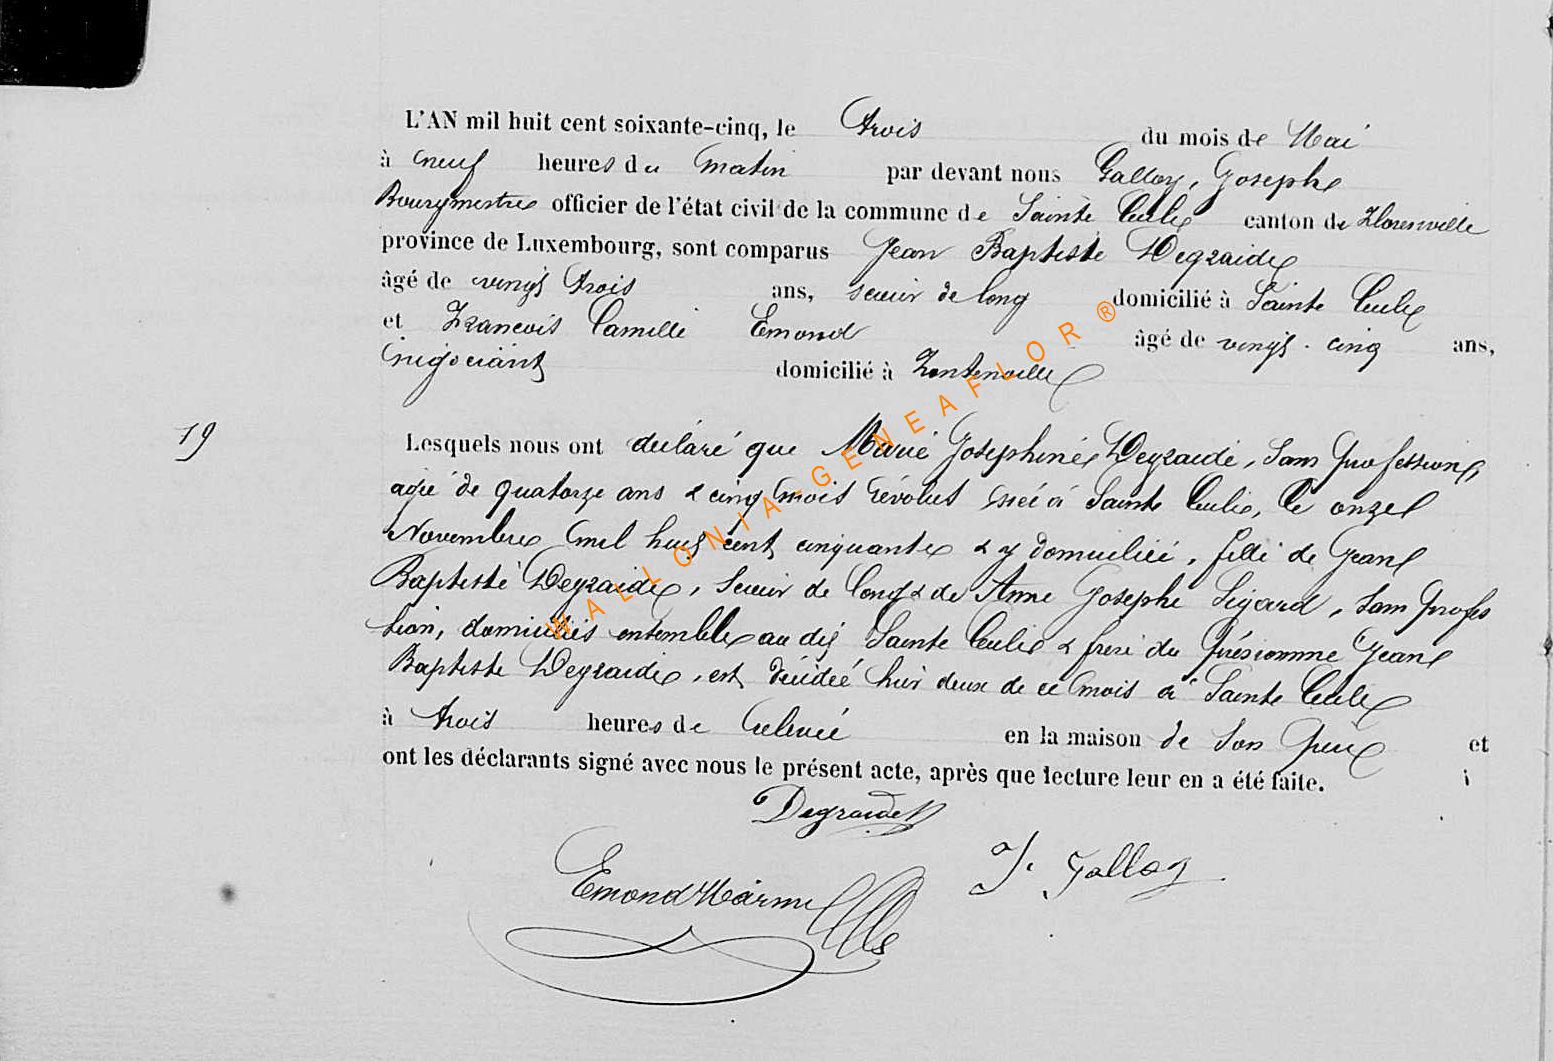 L'AN mil huit cent soixante-cinq, le trois du mois de Mai
à neuf heures du matin par devant nous Galloy, Josephe
Bourgmestre officier de l'état civil de la commune de Sainte Cecile canton de Florenville
province de Luxembourg, sont comparus Jean Baptiste Degraide
âgé de vingt trois ans, scieur de long domicilié à Sainte Cecile
et Francois Camille Emond âgé de vingt-cinq ans,
négociant domicilié à Fontenoille
19
Lesquels nous ont déclaré que Marie Josephine Degraide, sans profession,
agée de quatorze ans & cinq mois révolus née à Sainte Cecile, le onze
Novembre mil huit cent cinquante & y domiciliée, fille de Jean
Baptiste Degraide, scieur de long & de Anne Josephe Sigard, sans profes
sion, domiciliés ensemble au dit Sainte Cecile & frère du présiomme Jean
Baptiste Degraide, est décédée hier deux de ce mois à Sainte Cecile
à trois heures de relevée en la maison de son père et
ont les déclarants signé avec nous le présent acte, après que lecture leur en a été faite.
Degraide
Emond J. Galloy
WALLONIA-GENEAFLOR®